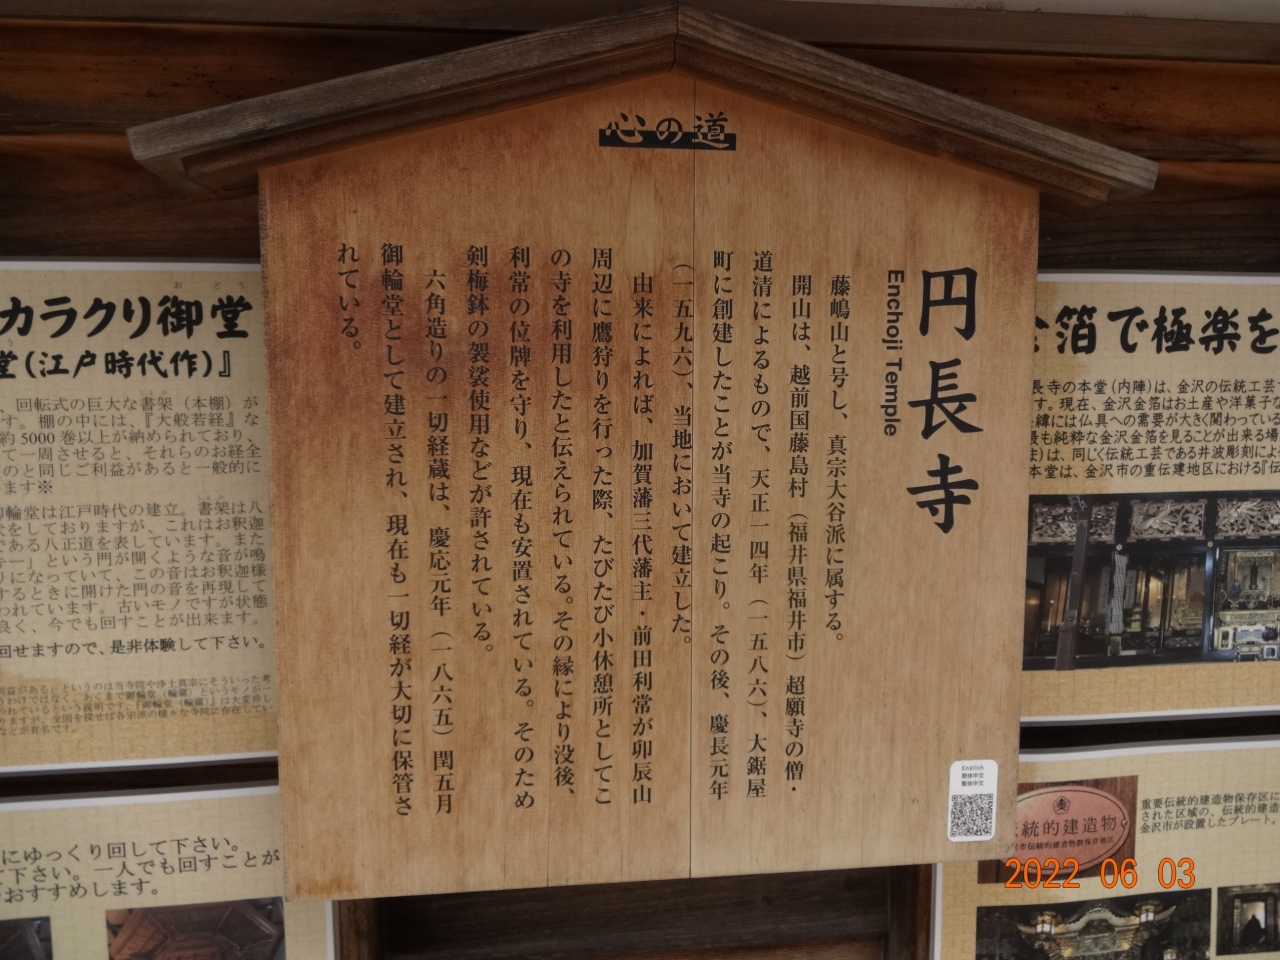 心の道
円長寺
Enchoji Temple
藤嶋山と号し、真宗大谷派に属する。
開山は、越前国藤島村（福井県福井市）超願寺の僧・
道清によるもので、天正一四年（一五八六）、大鋸屋
町に創建したことが当寺の起こり。その後、慶長元年
（一五九六）、当地において建立した。
由来によれば、加賀藩三代藩主・前田利常が卯辰山
周辺に鷹狩りを行った際、たびたび小休憩所としてこ
の寺を利用したと伝えられている。その縁により没後、
利常の位牌を守り、現在も安置されている。そのため
剣梅鉢の袈裟使用などが許されている。
六角造りの一切経蔵は、慶応元年（一八六五）閏五月
御輪堂として建立され、現在も一切経が大切に保管さ
れている。
English
簡体中文
繁体中文
おどう
カラクリ御堂
堂(江戸時代作)』
、回転式の巨大な書架（本棚）が
す。棚の中には、『大般若経』な
約5000巻以上が納められており、
て一周させると、それらのお経全
のと同じご利益があると一般的に
ます※
御輪堂は江戸時代の建立。書架は八
をしておりますが、これはお釈迦
である八正道を表しています。また
ー」という門が開くような音が鳴
りになっていて、この音はお釈迦様
するときに開けた門の音を再現して
われています。古いモノですが状態
良く、今でも回すことが出来ます。
回せますので、是非体験して下さい。
にゆっくり回して下さい。
て下さい。一人でも回すことが
おすすめします。
箔で極楽を
長寺の本堂（内陣）は、金沢の伝統工芸
す。現在、金沢金箔はお土産や洋菓子な
緯には仏具への需要が大きく関わっている
最も純粋な金沢金箔を見ることが出来る場
は、同じく伝統工芸である井波彫刻によ
本堂は、金沢市の重伝建地区における『伝
伝統的建造物
市伝統的建造物群保存地区
重要伝統的建造物保存区に
された区域の、伝統的建造
金沢市が設置したプレート。
2022 06 03